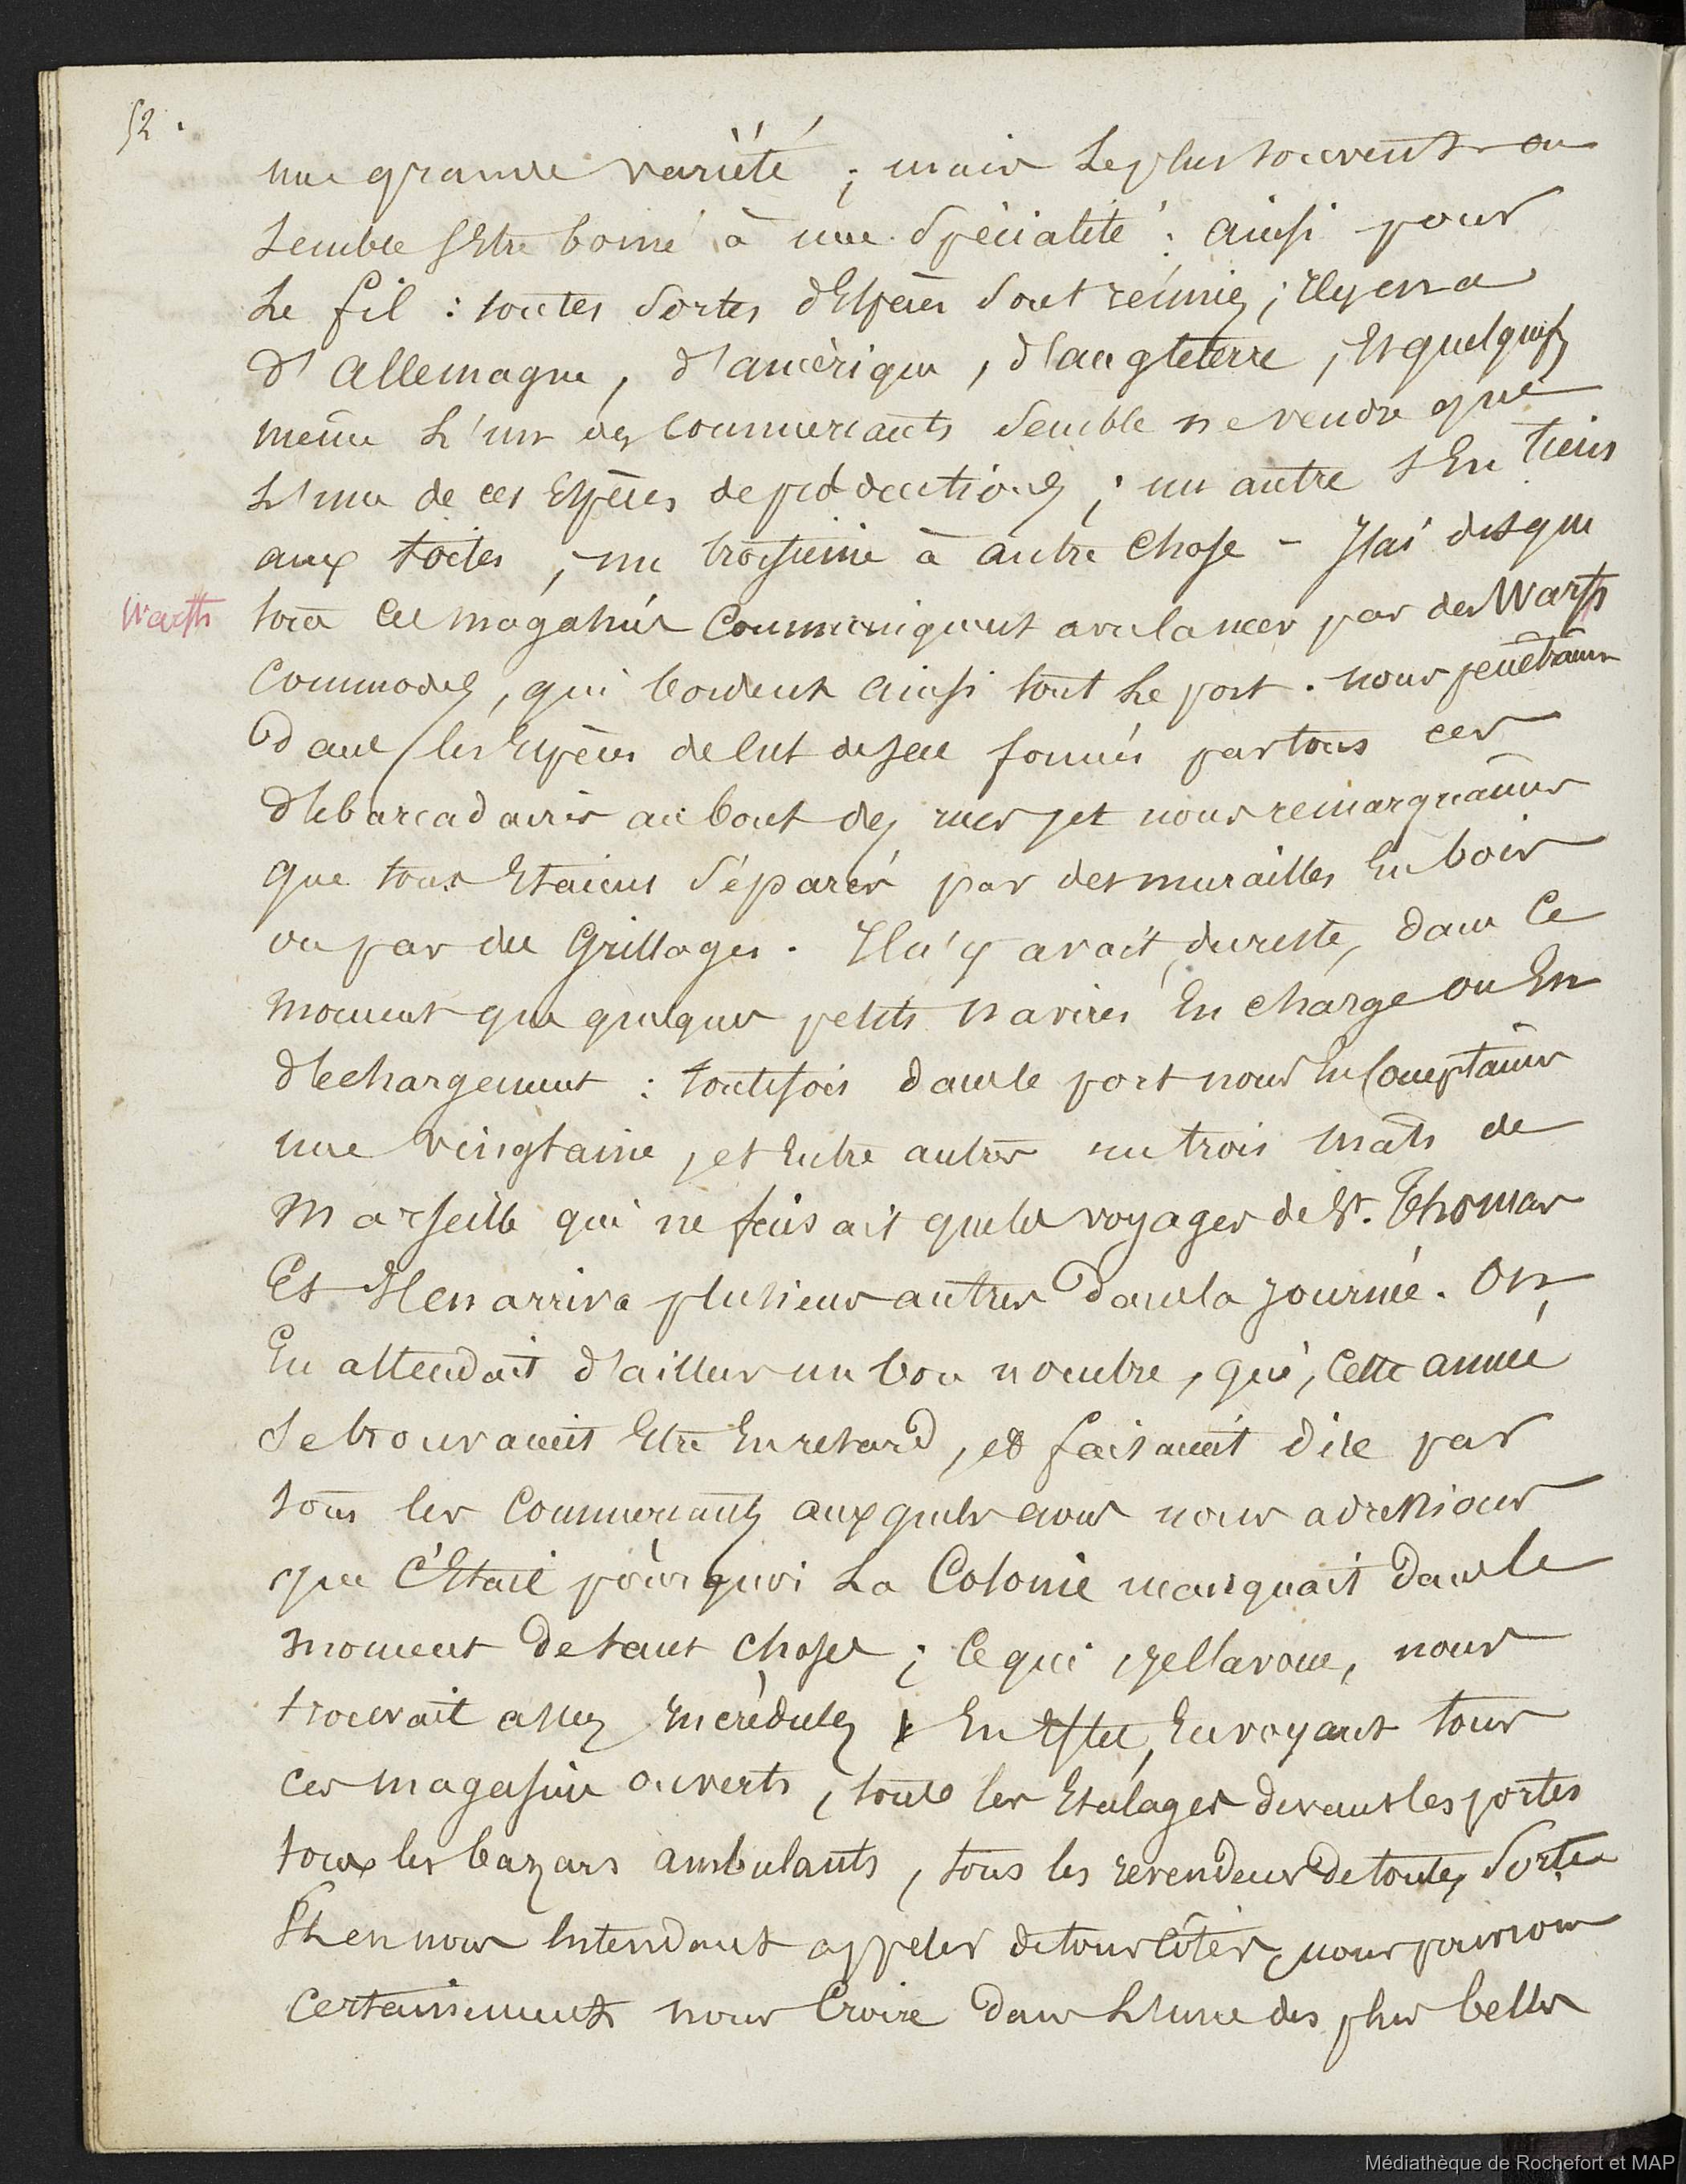 52.
une grande variété ; mais le plus souvent on
semble s'Etre borné à une Spécialité : Ainsi pour
le fil : toutes Sortes d'Espèces Sont réunies ; Il y en a
d'Allemagne, d'amérique, d'angleterre, Et quelquefs
même L'un des Commercants Semble ne vendre que
L'une de ces Espèces de productions ; un autre s'En tiens
aux toiles, un troisieme à autre Chose - J'ai dis que
tous Ces magasins Communiquent avec la mer par des Warfs
Warfs
Commodes, qui bordent Ainsi tout Le port. nous penétrâmes
Dans les Espèces de de formés par tous ces
débarcadaires au bout des rues et nous remarquâmes
que tous Etaient Séparés par des murailles En bois
ou par des Grillages. Il n'y avait, du reste, dans Ce
moment que quelques petits navires En charge ou En
déchargement : toutefois dans le port nous En Comptâmes
une vingtaine, et Entre autres un trois mâts de
Marseille qui ne faisait que les voyages de St. Thomas
Et Il en arriva plusieurs autres Dans la journée. On
En attendait d'ailleurs un bon nombre, qui, Cette année
Se trouvaient Etre En retard, et faisaient dire par
tous les Commercants auxquels nous nous adressions
que C'Etait pourquoi La Colonie manquait Dans le
moment De tant Choses ; Ce qui, je l'avoue, nous
trouvait assez Incrédules En Effet, En voyant tous
ces magasins ouverts, tous les Etalages devant les portes
tous les bazars ambulants, tous les revendeurs De toutes Sortes
Et en nous Entendant appeler de tous côtés, nous pouvions
Certainement nous Croire Dans L'une des plus belles
Médiathèque de Rochefort et MAP